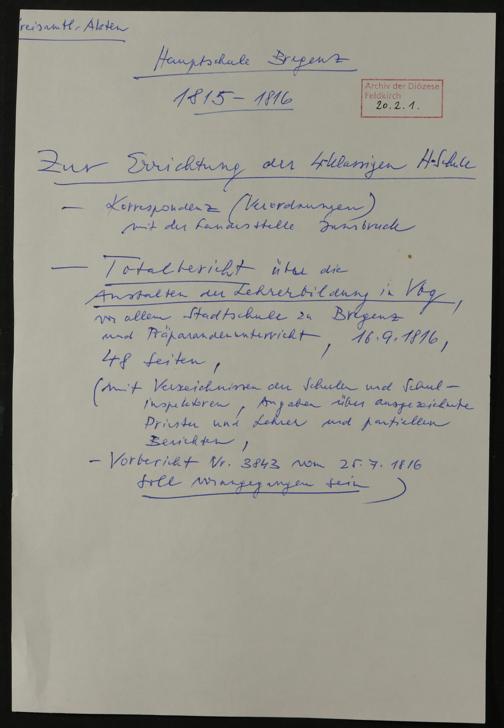 Kreisamtl. Akten
Hauptschule Bregenz
1815 - 1816
Archiv der Diözese
Feldkirch
20.2.1.
Zur Errichtung der 4klassigen H-Schule
— Korrespondenz (Verordnungen)
mit der Landesstelle Innsbruck
— Totalbericht über die
Anstalten der Lehrerbildung in Vbg,
vor allem Stadtschule zu Bregenz
und Präparandenunterricht, 16.9.1816,
48 Seiten,
(mit Verzeichnissen der Schulen und Schul-
inspektoren, Angaben über ausgezeichnete
Priester und Lehrer und partiellen
Berichten,
- Vorbericht Nr. 3843 vom 25.7.1816
soll vorangegangen sein)